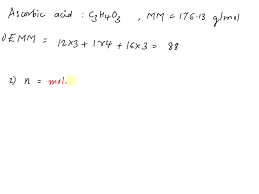 Ascorbic acid : C3H4O3 , MM = 176.13 g/mol
1) EMM = 12x3 + 1x4 + 16x3 = 88
2) n = mol.